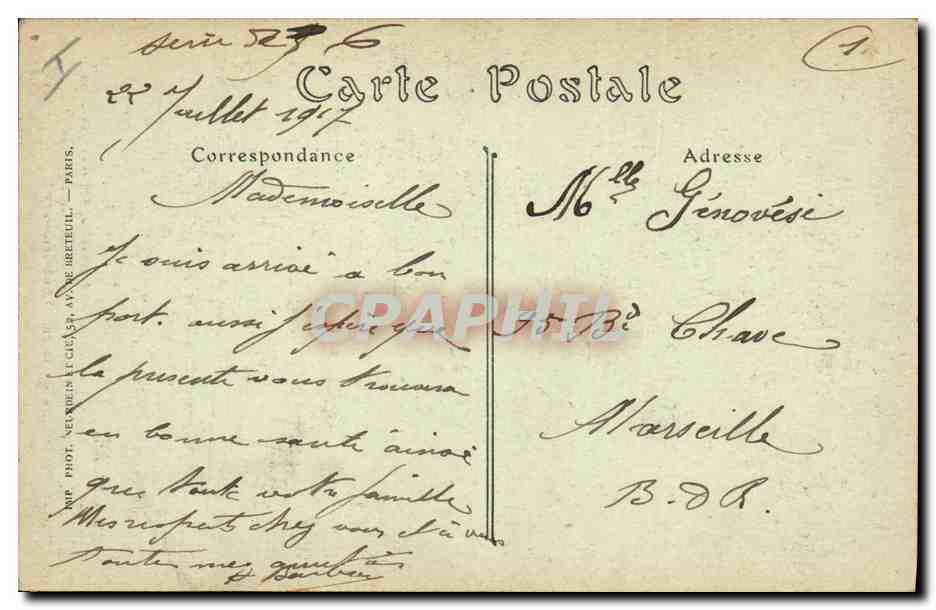 Serie 523 6
1
Carte Postale
22 Juillet 1917
Correspondance
Mademoiselle
Je suis arrivé a bon
port. aussi J'espère que
la presente vous trouvera
en bonne santé ainsi
que toute votre famille
Mes respects chez vous et à vous
toutes mes amitiés
Barbier
Adresse
Mlle Génovési
75 Bd Chave
Marseille
B-d R.
IMP. PHOT. NEURDEIN ET CIE, 52, AV. DE BRETEUIL. — PARIS.
CPAPHIL